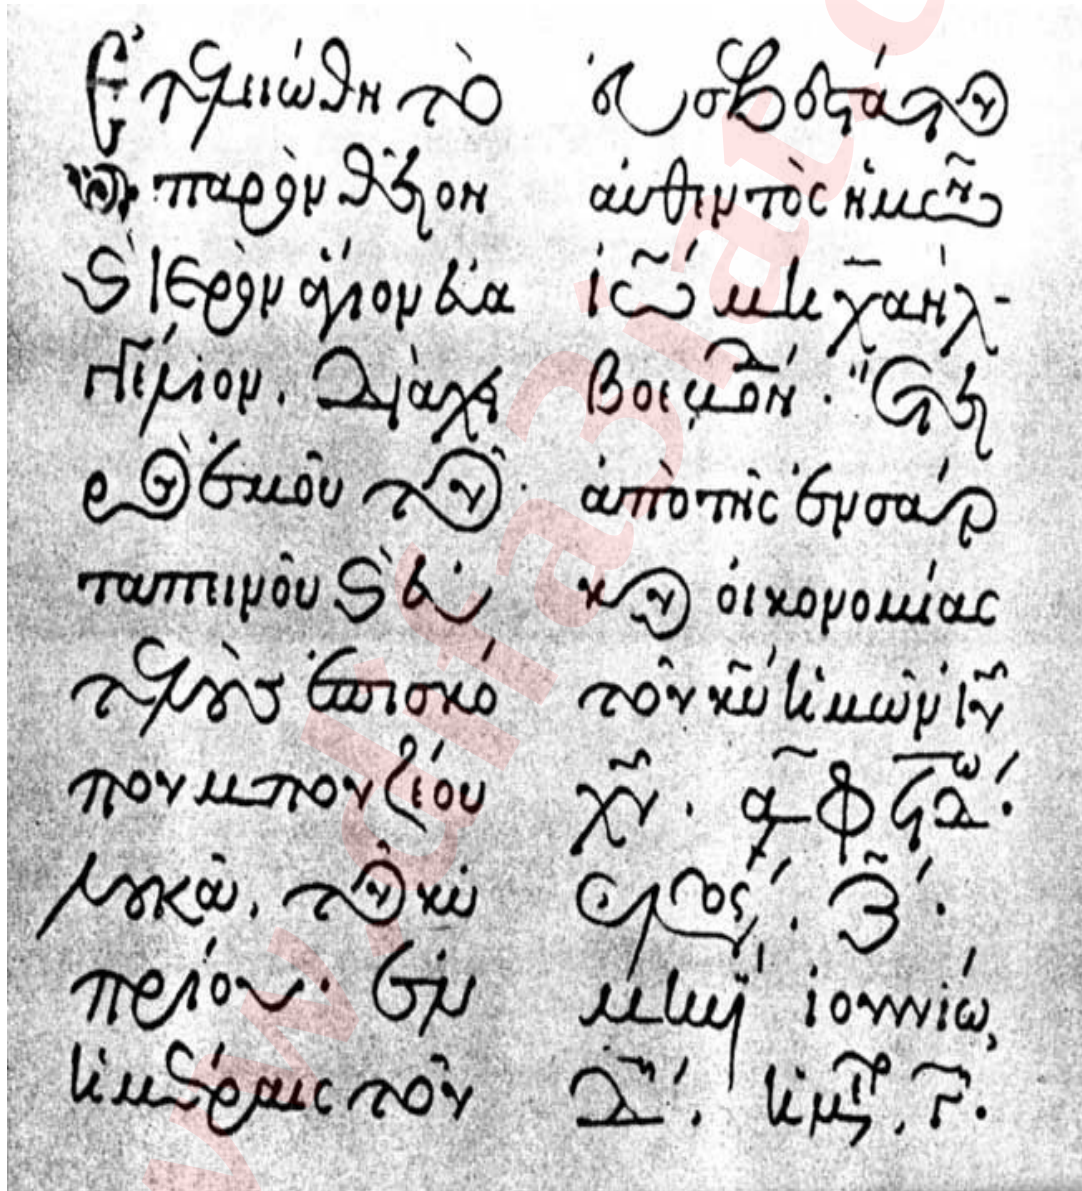 Ἐτελειώθη τὸ
παρὸν θεῖον
καὶ ἱερὸν ἅγιον εὐα
γγέλιον. διὰ χει
ρὸς ἐμοῦ τοῦ
ταπεινοῦ καὶ εὐ
τελοῦς ἐπισκό
που μπουζέου
λουκᾶ, τοῦ κυ
πρίου· ἐν
ἡμέραις τοῦ
εὐσεβεστάτου
αὐθεντὸς ἡμῶν
ἰῶ μιχαὴλ
βοεβόδα. Ἔτει
ἀπὸ τῆς ἐνσάρ
κου οἰκονομίας
τοῦ κυ ἡμῶν ιυ
χυ. αφϟδ.
μηνὶ ἰουννίω,
δ. ἡμέρ, γ.